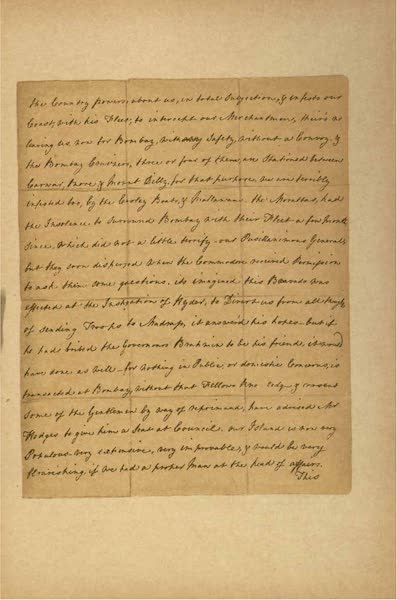 the Country powers about us, in total Subjection, & infests our
Coast, with his Fleet, to intercept our Merchantmen, theirs no
leaving us now for Bombay, with any Safety, without a Convoy, &
the Bombay Cruizers, three or four of them, are Stationed between
Carwar, there & Mount Dilly, for that purpose. we are terribly
infested too, by the Cooley Boats, & Mallawans. the Morattas, had
the Insolence to Surround Bombay with their Fleet a few Months
since, which did not a little terrify our Pusillanimous Generals
but they soon dispersed when the Commodore received Permission
to ask them some questions. its imagined this Bravado was
effected at the Instigation of Hyder, to Divert us from all thoughts
of sending Troops to Madrass, it answered his hopes - but if
he had bribed the Governors Brahmin to be his friend, it would
have done as well - for nothing in Public, or domestic Concerns, is
transacted at Bombay without that Fellows Knowledge - & consent
some of the Gentlemen by way of reprimand, have advised Mr
Hodges to give him a Seat at Council. our Island is now very
Populous very extensive, very improvable, & would be very
flourishing, if we had a proper Man at the head of affairs.
This